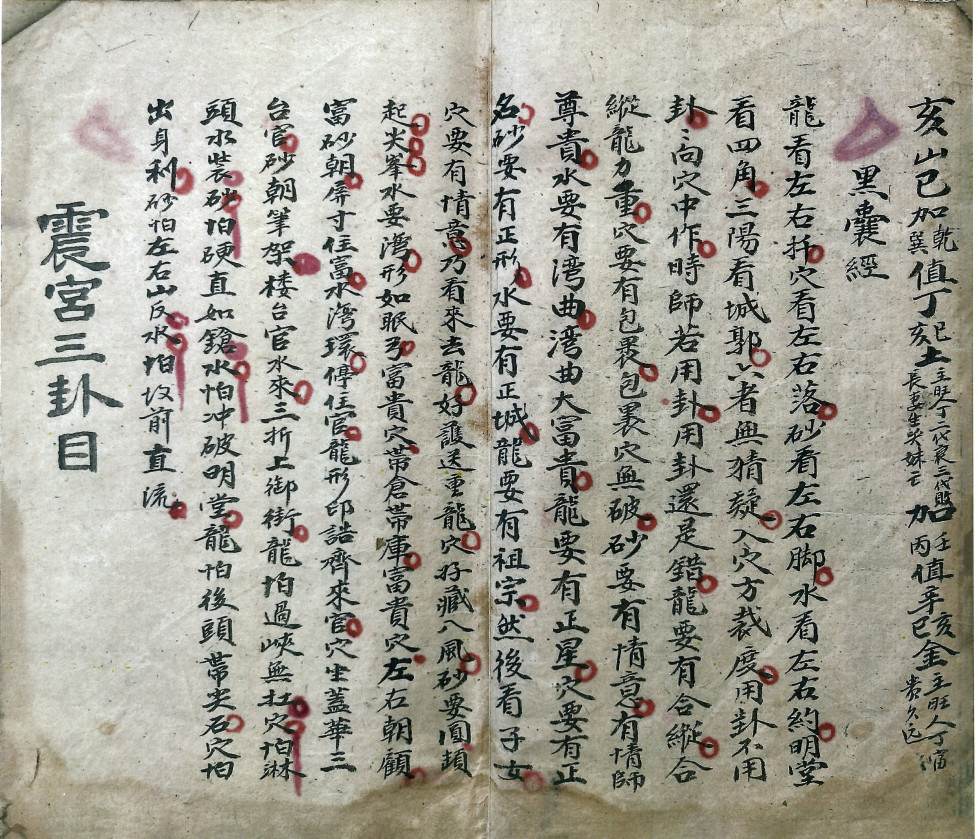 亥山巳加乾巽值丁巳亥土主旺丁二代衰三代敗長妻生笑妹亡加壬丙值辛亥巳金主旺人丁富貴久遠
黑囊經
龍看左右扦穴看左右落砂看左右脚水看左右約明堂
看四角三陽看城郭六者無猜疑入穴方裁度用卦不用
卦卦向穴中作時師若用卦用卦還是錯龍要有合縱合
縱龍力重穴要有包裹包裹穴無破砂要有情意有情師
尊貴水要有湾曲湾曲大富貴龍要有正星穴要有正
名砂要有正形水要有正城龍要有祖宗然後看子女
穴要有情意乃看來去龍好護送重龍穴好藏八風砂要圓頭
起尖峯水要湾形如眠弓富貴穴帶倉帶庫富貴穴左右朝顧
富砂朝屏寸住富水湾環停住官龍形印誥齊來官穴坐蓋華三
台官砂朝筆架楼台官水來三折上御街龍怕過峽無扛穴怕淋
頭水装砂怕硬直如鎗水怕冲破明堂龍怕後頭帶尖石穴怕
出身利砂怕左右山反水怕坟前直流
震宮三卦目